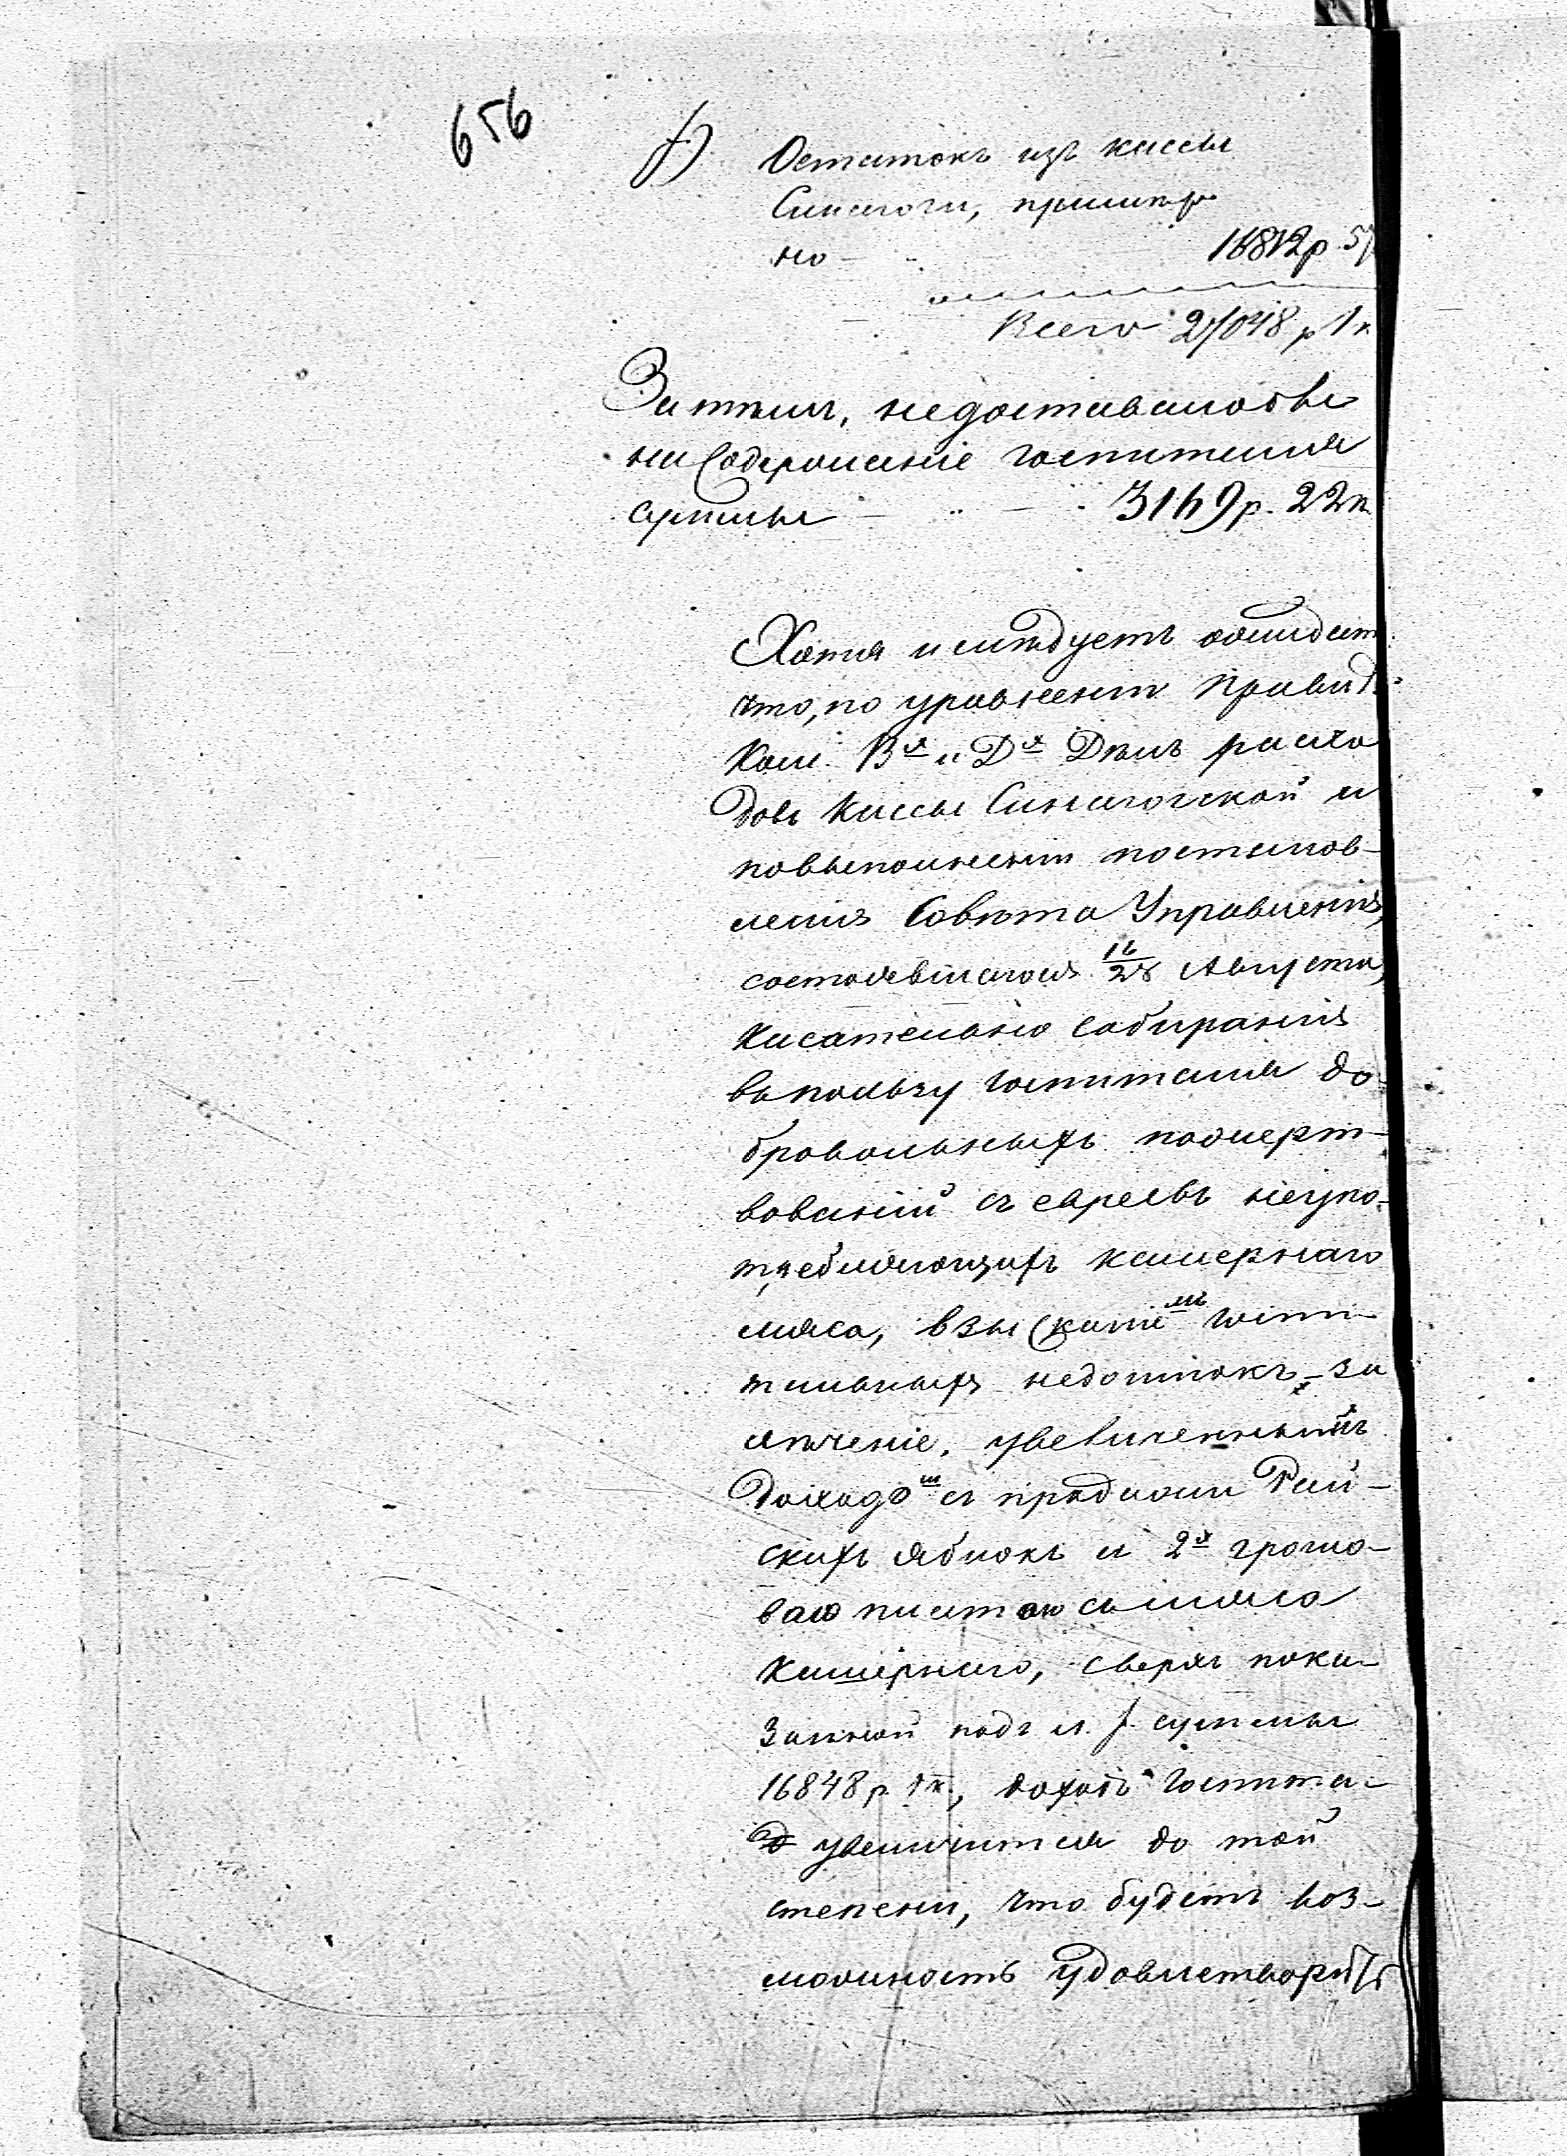 656
f) Остатокъ изъ кассы
Синагоги, примѣр
но - 16812 р. 57
Всего 27048 р 1 к
Затѣмъ, недоставало бы
на Содержаніе госпиталя
суммы — " — 3169 р. 22 к
Хотя и слѣдуетъ ожидат
что, по уравненіи Правит.
Ком. Вх и Дх Дѣлъ расхо
довъ Кассы Синагогской и
по выполненіи постанов-
ленія Совѣта Управленія,
состоявшагося 16/28 Августа,
касательно собиранія
въ пользу госпиталя до
бровольныхъ пожерт-
вованій съ евреевъ неупо-
требляющихъ кашернаго
мяса, взысканіемъ госпи-
тальныхъ недоимокъ за
леченіе, увеличеннымъ
доходомъ съ продажи Рай-
скихъ яблокъ и 2х грошо-
вою платою съ мяса
кашернаго, сверхъ пока-
занной подъ л. f. суммы
16848 р. 1 к., доходъ Госпита-
увеличится до той
степени, что будетъ воз-
можность удовлетворить